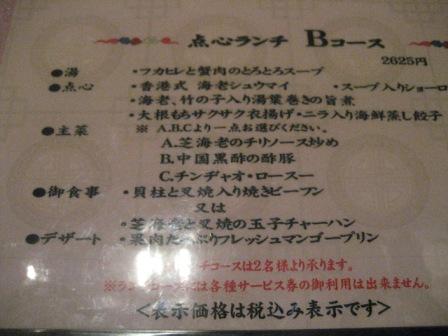 点心ランチ Bコース
2625円
●湯 ・フカヒレと蟹肉のとろとろスープ
●点心 ・香港式 海老シュウマイ ・スープ入りショーロ
・海老、竹の子入り湯葉巻きの旨煮
・大根もちサクサク衣揚げ・ニラ入り海鮮蒸し餃子
●主菜 ※ A.B.Cより一点お選びください。
A.芝海老のチリソース炒め
B.中国黒酢の酢豚
C.チンヂャオ・ロースー
●御食事 ・貝柱と叉焼入り焼きビーフン
又は
・芝海老と叉焼の玉子チャーハン
●デザート ・果肉たっぷりフレッシュマンゴープリン
チコースは2名様より承ります。
※ランチコースには各種サービス券の御利用は出来ません。
<表示価格は税込み表示です>